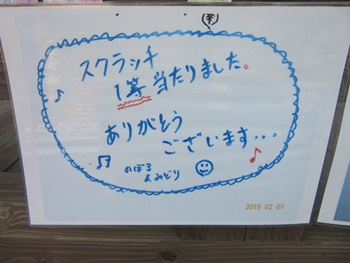 スクラッチ
1等当たりました。
ありがとう
ございます・・・
のぼる
&みどり
2016 02 07